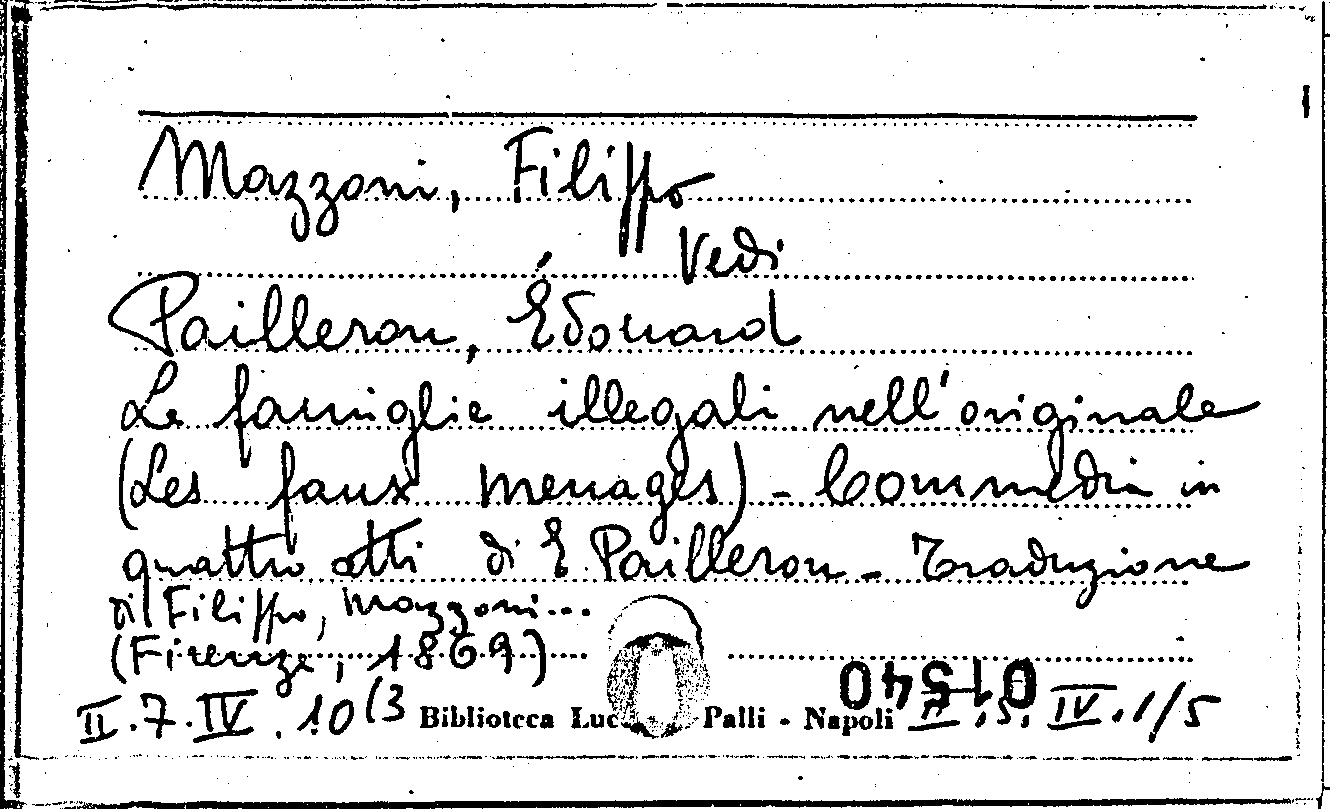 Mazzoni, Filippo
Vedi
Pailleron, Édouard
Le famiglie illegali nell'originale
(Les faux menages) - Commedia in
quattro atti di E Pailleron - Traduzione
di Filippo, Mazzoni...
(Firenze, 1869)
01540
II.7.IV.10(3 Biblioteca Luc Palli - Napoli II.5.IV.1/5